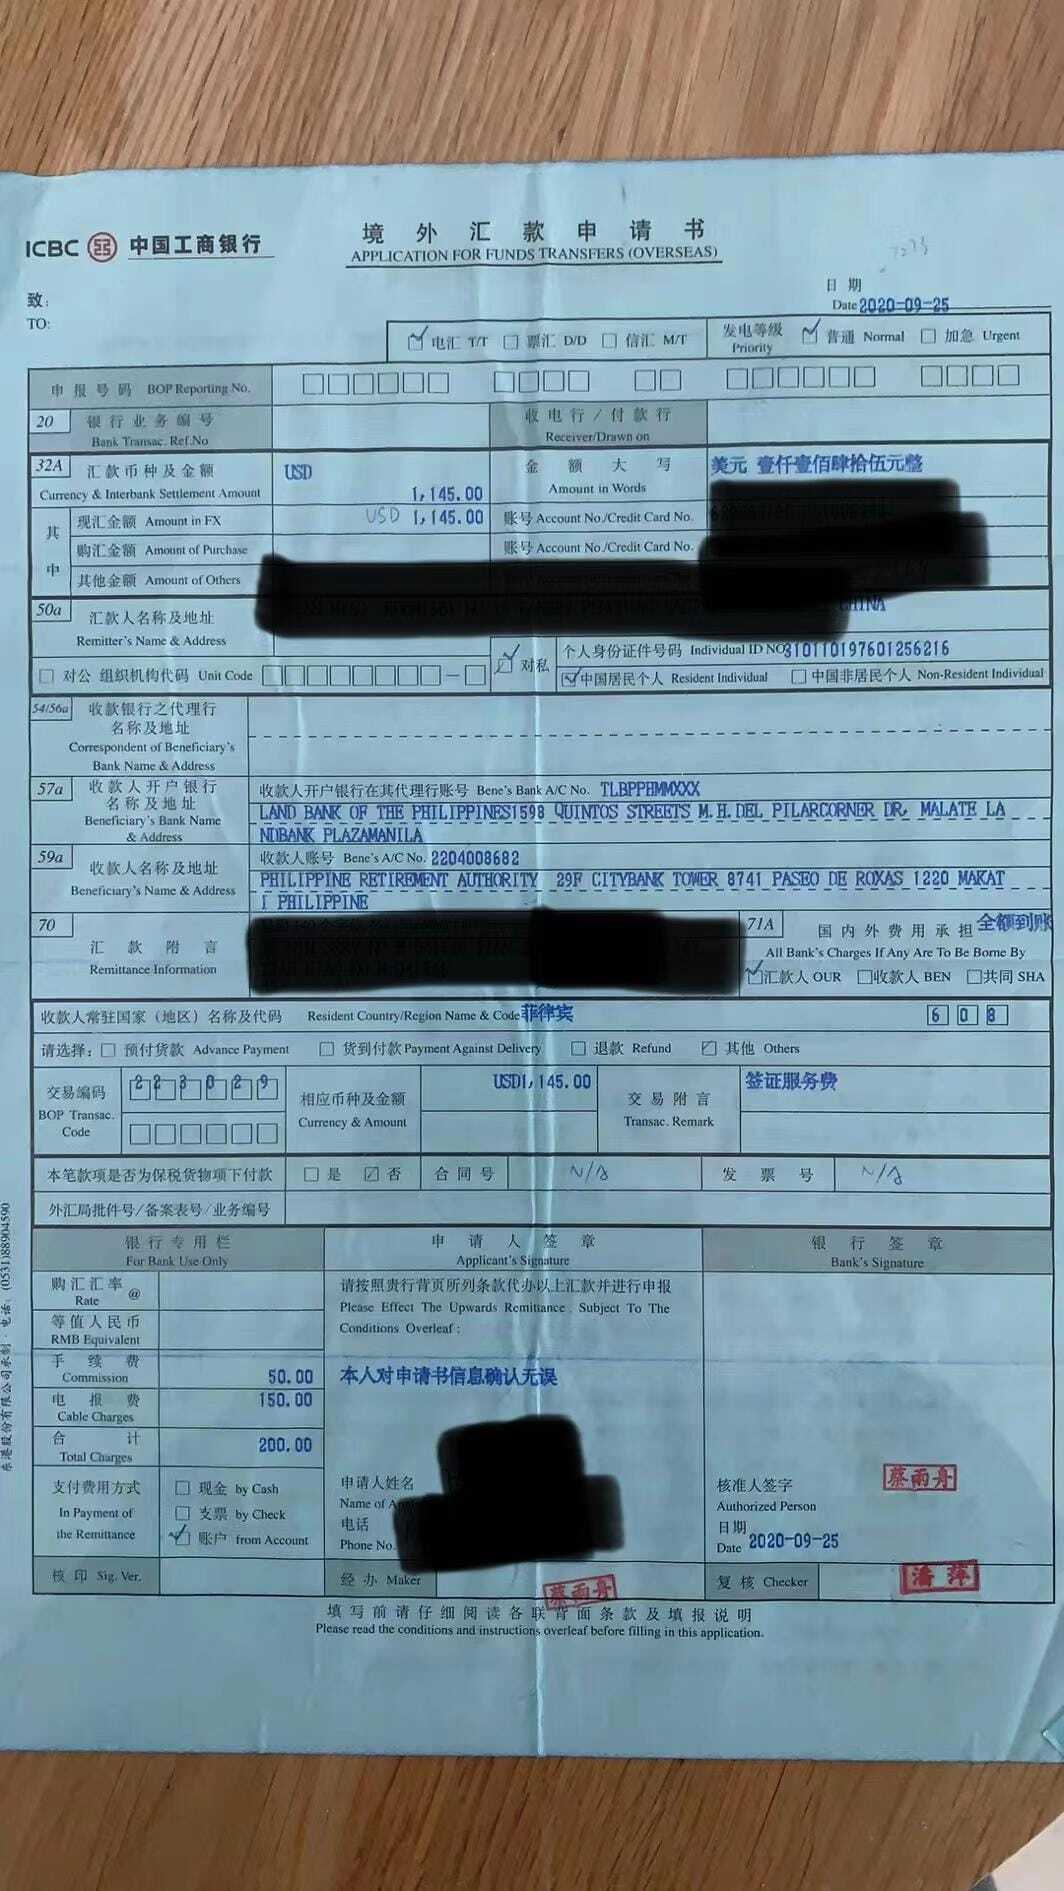 ICBC 中国工商银行
境外汇款申请书
APPLICATION FOR FUNDS TRANSFERS (OVERSEAS)
致:
TO:
日期
Date 2020-09-25
电汇 T/T 票汇 D/D 信汇 M/T 发电等级 Priority 普通 Normal 加急 Urgent
申报号码 BOP Reporting No.
20 银行业务编号 Bank Transac. Ref.No 收电行/付款行 Receiver/Drawn on
32A 汇款币种及金额 Currency & Interbank Settlement Amount USD 1,145.00 金额大写 Amount in Words 美元 壹仟壹佰肆拾伍元整
其中 现汇金额 Amount in FX USD 1,145.00 账号 Account No./Credit Card No.
购汇金额 Amount of Purchase 账号 Account No./Credit Card No.
其他金额 Amount of Others
50a 汇款人名称及地址 Remitter's Name & Address CHINA
对公 组织机构代码 Unit Code 对私 个人身份证件号码 Individual ID NO 310110197601256216
中国居民个人 Resident Individual 中国非居民个人 Non-Resident Individual
54/56a 收款银行之代理行
名称及地址
Correspondent of Beneficiary's
Bank Name & Address
57a 收款人开户银行 名称及地址 Beneficiary's Bank Name & Address 收款人开户银行在其代理行账号 Bene's Bank A/C No. TLBPPHMMXXX
LAND BANK OF THE PHILIPPINES1598 QUINTOS STREETS M.H.DEL PILARCORNER DR, MALATE LA
NDBANK PLAZAMANILA
59a 收款人名称及地址 Beneficiary's Name & Address 收款人账号 Bene's A/C No. 2204008682
PHILIPPINE RETIREMENT AUTHORITY 29F CITYBANK TOWER 8741 PASEO DE ROXAS 1220 MAKAT
I PHILIPPINE
70 汇款附言 Remittance Information 71A 国内外费用承担 全额到账
All Bank's Charges If Any Are To Be Borne By
汇款人 OUR 收款人 BEN 共同 SHA
收款人常驻国家（地区）名称及代码 Resident Country/Region Name & Code 菲律宾 608
请选择: 预付货款 Advance Payment 货到付款 Payment Against Delivery 退款 Refund 其他 Others
交易编码 BOP Transac. Code 223029 相应币种及金额 Currency & Amount USD1,145.00 交易附言 Transac. Remark 签证服务费
本笔款项是否为保税货物项下付款 是 否 合同号 N/A 发票号 N/A
外汇局批件号/备案表号/业务编号
银行专用栏 For Bank Use Only 申请人签章 Applicant's Signature 银行签章 Bank's Signature
购汇汇率 Rate @
请按照贵行背页所列条款代办以上汇款并进行申报
Please Effect The Upwards Remittance, Subject To The
Conditions Overleaf:
等值人民币 RMB Equivalent
手续费 Commission 50.00 本人对申请书信息确认无误
电报费 Cable Charges 150.00
合计 Total Charges 200.00
支付费用方式 In Payment of the Remittance
现金 by Cash
支票 by Check
账户 from Account
申请人姓名
Name of
电话
Phone No.
核准人签字 蔡雨舟
Authorized Person
日期
Date 2020-09-25
核印 Sig. Ver. 经办 Maker 蔡雨舟 复核 Checker 潘萍
填写前请仔细阅读各联背面条款及填报说明
Please read the conditions and instructions overleaf before filling in this application.
东港股份有限公司承制·电话: (0531)88904590